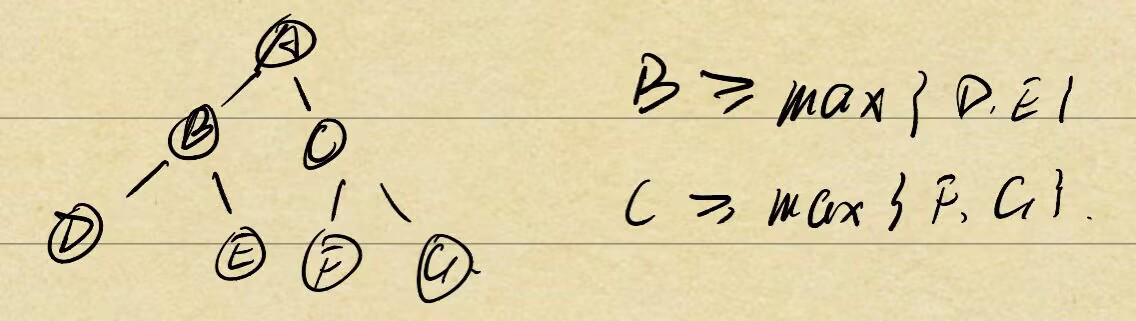 A
B C
D E F G
B ≥ max { D, E }
C ≥ max { F, G }.